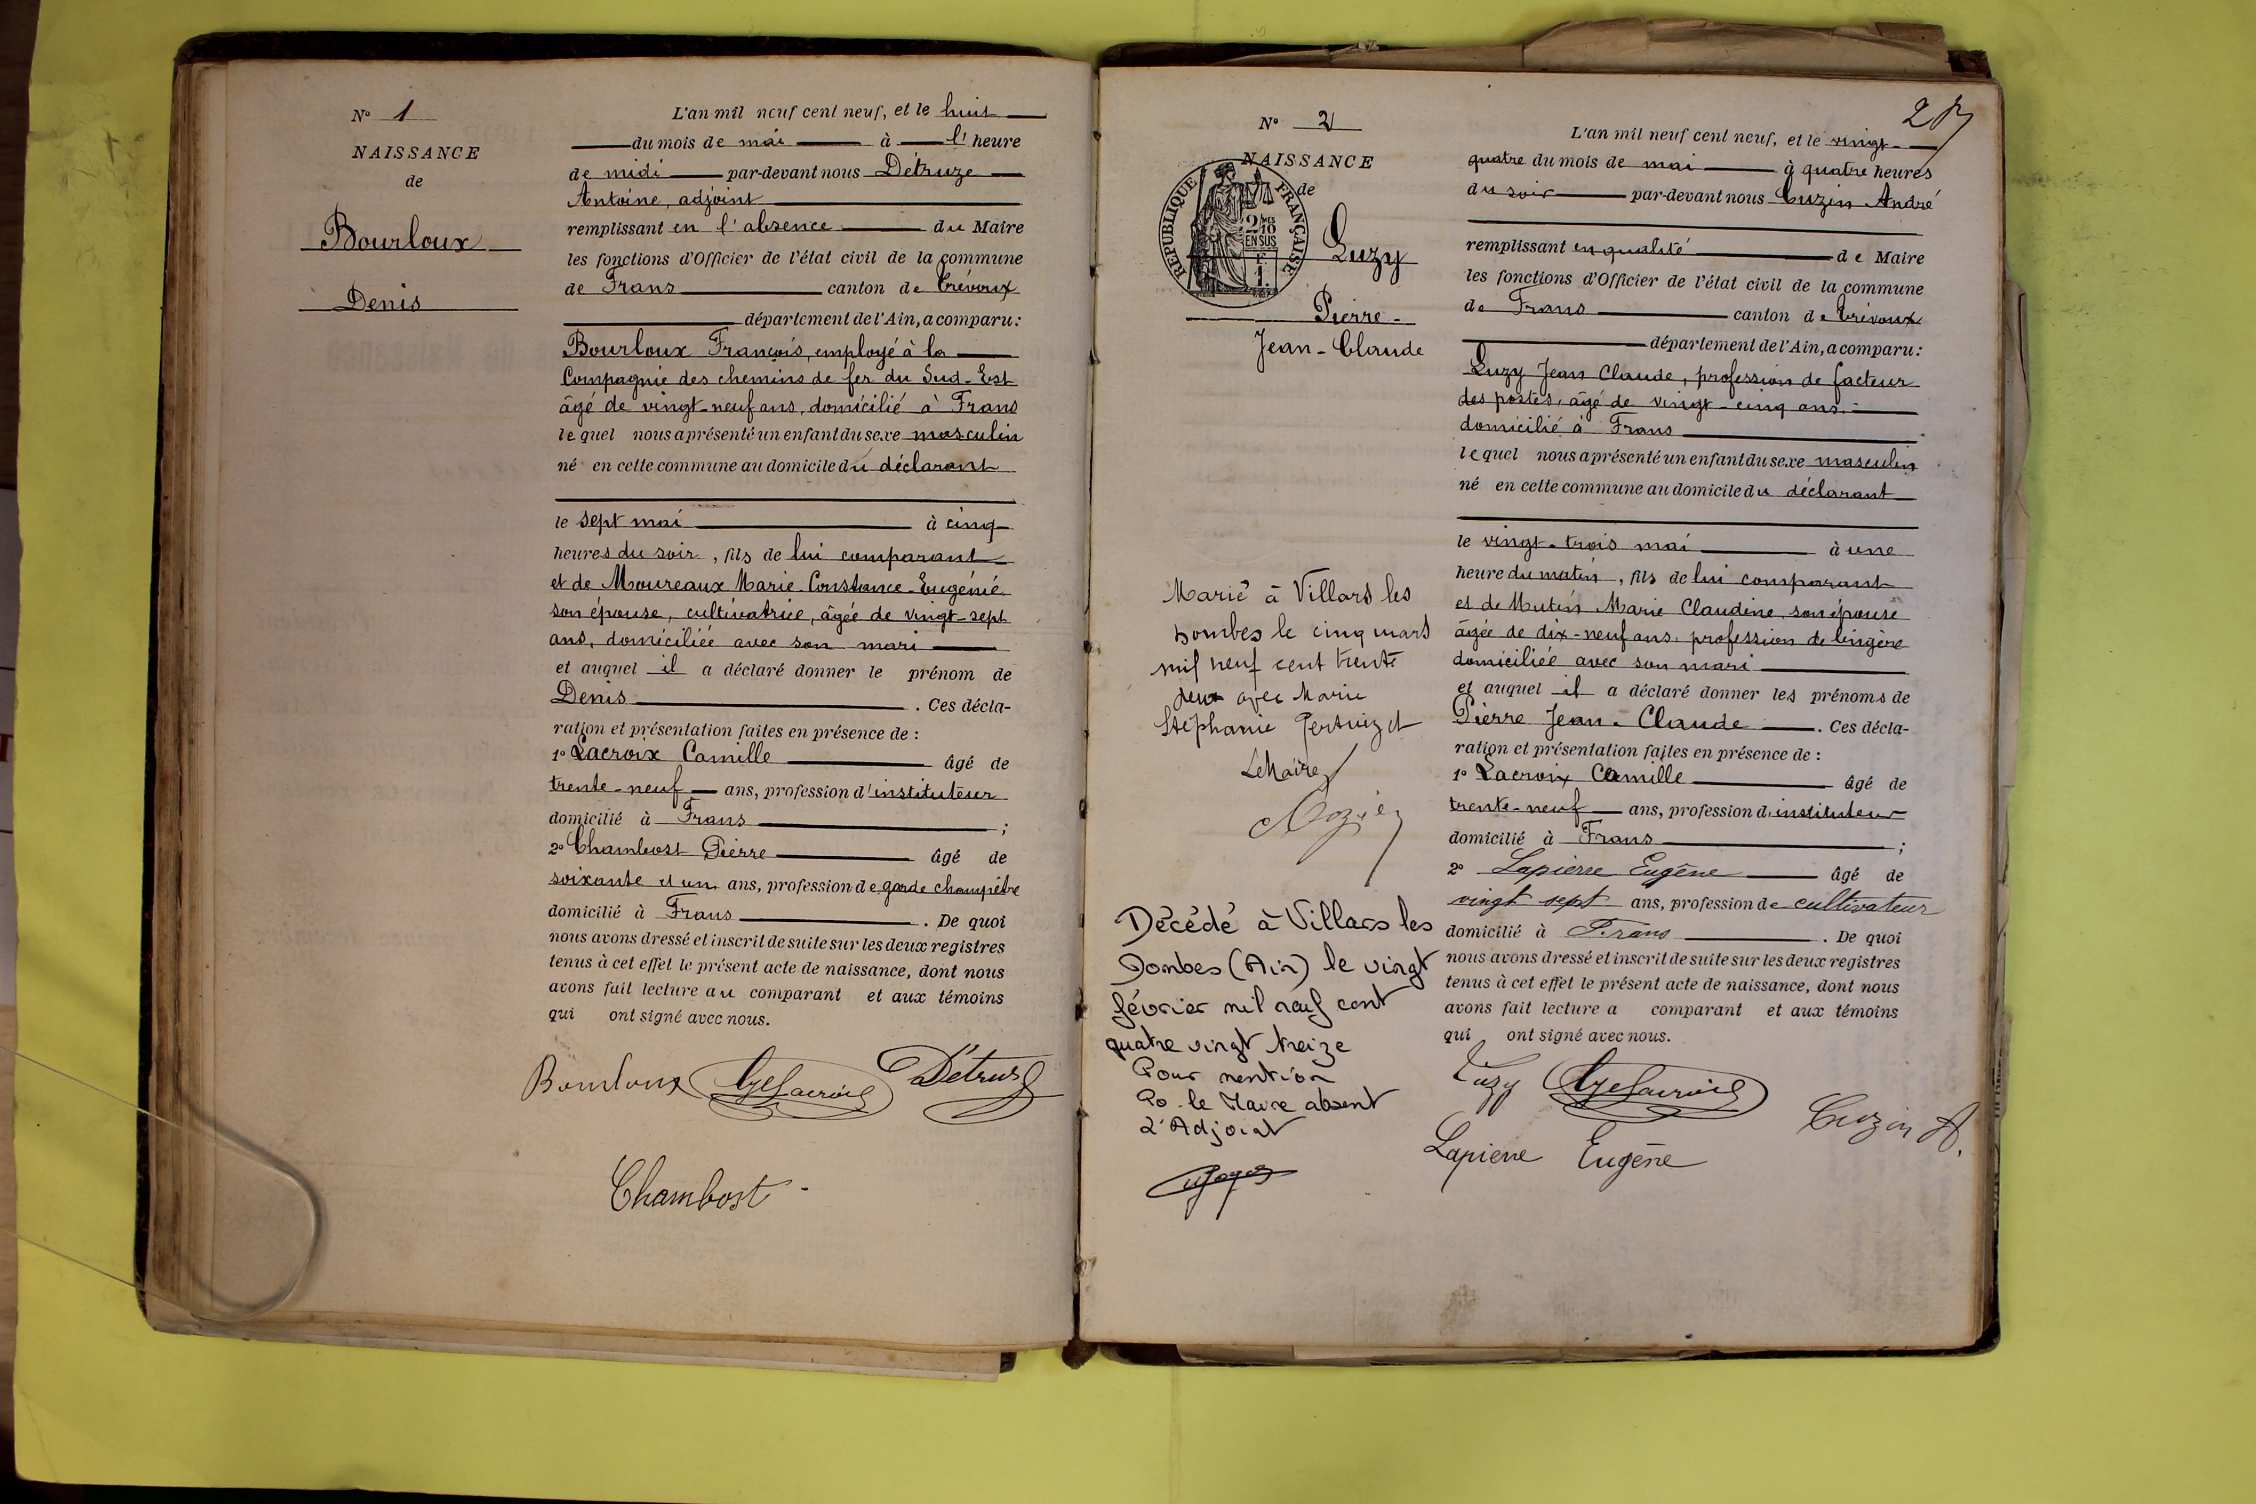 N° 1
NAISSANCE
de
Bourloux
Denis
L'an mil neuf cent neuf, et le huit
du mois de mai à l'heure
de midi par-devant nous Détruze
Antoine, adjoint
remplissant en l'absence du Maire
les fonctions d'Officier de l'état civil de la commune
de Frans canton de Trévoux
département de l'Ain, a comparu :
Bourloux François, employé à la
Compagnie des chemins de fer du Sud-Est
âgé de vingt-neuf ans, domicilié à Frans
lequel nous a présenté un enfant du sexe masculin
né en cette commune au domicile du déclarant
le sept mai à cinq
heures du soir, fils de lui comparant
et de Moureaux Marie-Constance-Eugénie
son épouse, cultivatrice, âgée de vingt-sept
ans, domiciliée avec son mari
et auquel il a déclaré donner le prénom de
Denis. Ces décla-
ration et présentation faites en présence de :
1° Lacroix Camille âgé de
trente-neuf ans, profession d'instituteur
domicilié à Frans ;
2° Chambost Pierre âgé de
soixante et un ans, profession de garde champêtre
domicilié à Frans. De quoi
nous avons dressé et inscrit de suite sur les deux registres
tenus à cet effet le présent acte de naissance, dont nous
avons fait lecture au comparant et aux témoins
qui ont signé avec nous.
Bourloux Lacroix Détruze
Chambost
N° 2
NAISSANCE
de
RÉPUBLIQUE FRANÇAISE
2/10MES
EN SUS
F.
1.
Luzy
Pierre-
Jean-Claude
Marié à Villars les
Dombes le cinq mars
mil neuf cent trente
deux avec Marie
Stéphanie Pertuizet
Le Maire
Décédé à Villars les
Dombes (Ain) le vingt
février mil neuf cent
quatre vingt treize
Pour mention
Po. le Maire absent
L'Adjoint
L'an mil neuf cent neuf, et le vingt-
quatre du mois de mai à quatre heures
du soir par-devant nous Cuzin André
remplissant en qualité de Maire
les fonctions d'Officier de l'état civil de la commune
de Frans canton de Trévoux
département de l'Ain, a comparu :
Luzy Jean Claude, profession de facteur
des postes, âgé de vingt-cinq ans
domicilié à Frans
lequel nous a présenté un enfant du sexe masculin
né en cette commune au domicile du déclarant
le vingt-trois mai à une
heure du matin, fils de lui comparant
et de Mutin Marie Claudine, son épouse
âgée de dix-neuf ans, profession de lingère
domiciliée avec son mari
et auquel il a déclaré donner les prénoms de
Pierre Jean-Claude. Ces décla-
ration et présentation faites en présence de :
1° Lacroix Camille âgé de
trente-neuf ans, profession d'instituteur
domicilié à Frans ;
2° Lapierre Eugène âgé de
vingt sept ans, profession de cultivateur
domicilié à Frans. De quoi
nous avons dressé et inscrit de suite sur les deux registres
tenus à cet effet le présent acte de naissance, dont nous
avons fait lecture a comparant et aux témoins
qui ont signé avec nous.
Luzy Lacroix
Cuzin A.
Lapierre Eugène